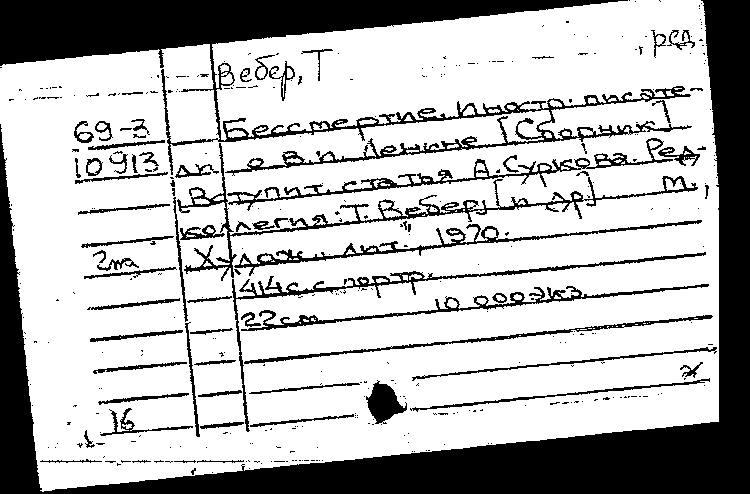 Вебер, Т , ред.
69-3 Бессмертие. Иностр. писате-
10913 ли о В.И. Ленине [Сборник]
Вступит. статья А. Суркова. Ред-
коллегия: Т. Вебер, [и др.] М.,
2та „Худож. лит.", 1970.
414с. с портр.
22см 10 000экз.
16 ж